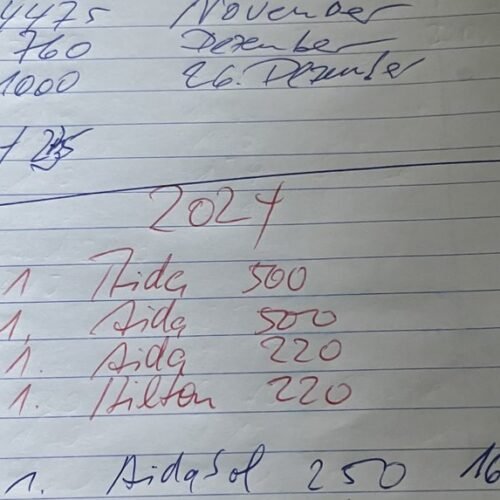 4475 November
760 Dezember
1000 26. Dezember
2024
1 Aida 500
1. Aida 500
1. Aida 220
1. Hilton 220
1. AidaSol 250 16